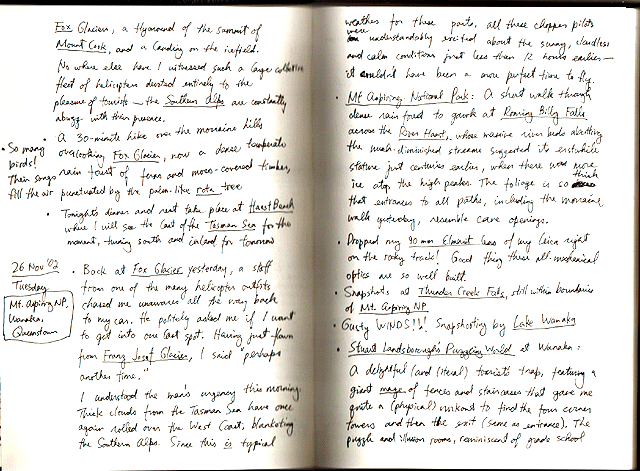 Fox Glacier, a flyaround of the summit of
Mount Cook, and a landing on the icefield.
No where else have I witnessed such a large collective
fleet of helicopters devoted entirely to the
pleasure of tourists — the Southern Alps are constantly
abuzz with their presence.
• A 30-minute hike over the moraine hills
overlooking Fox Glacier, now a dense temperate
rain forest of ferns and moss-covered timber,
• So many
birds!
Their songs
fill the air punctuated by the palm-like rata tree
• Tonight's dinner and rest take place at Haast Beach
where I will see the last of the Tasman Sea for the
moment, turning south and inland for tomorrow
26 Nov '02
Tuesday
Mt. Aspiring NP,
Wanaka,
Queenstown
• Back at Fox Glacier yesterday, a staff
from one of the many helicopter outfits
chased me unawares all the way back
to my car. He politely asked me if I want
to get into one last spot. Having just flown
from Franz Josef Glacier, I said "perhaps
another time."
I understood the man's urgency this morning.
Thick clouds from the Tasman Sea have once
again rolled over the West Coast, blanketing
the Southern Alps. Since this is typical
weather for these parts, all these chopper pilots
were understandably excited about the sunny, cloudless
and calm conditions just less than 12 hours earlier —
it couldn't have been a more perfect time to fly.
• Mt Aspiring National Park: A short walk through
dense rain forest to gawk at Roaring Billy Falls
across the River Haast, whose massive river beds abutting
the much-diminished streams suggested its erstwhile
stature just centuries earlier, when there was more
ice atop the high peaks. The foliage is so thick
that entrances to all paths, including the moraine
walk yesterday, resemble cave openings.
• Dropped my 90mm Elmarit lens of my Leica right
on the rocky track! Good thing these all-mechanical
optics are so well built.
• Snapshots at Thunder Creek Falls, still within boundaries
of Mt Aspiring NP
• Gusty WINDS!!! Snapshooting by Lake Wanaka
• Stuart Landsborough's Puzzling World at Wanaka:
A delightful (and literal) tourist trap, featuring a
giant maze of fences and staircases that gave me
quite a (physical) workout to find the four corner
towers and then the exit (same as entrance). The
puzzle and illusion rooms, reminiscent of grade school